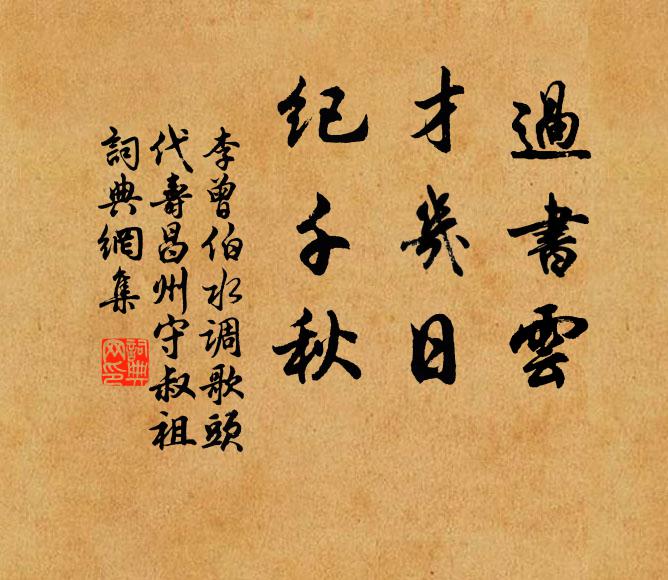 過書雲
才幾日
紀千秋
李曾伯水调歌頭
代壽昌州守叔祖
詞典網集
詞典網印